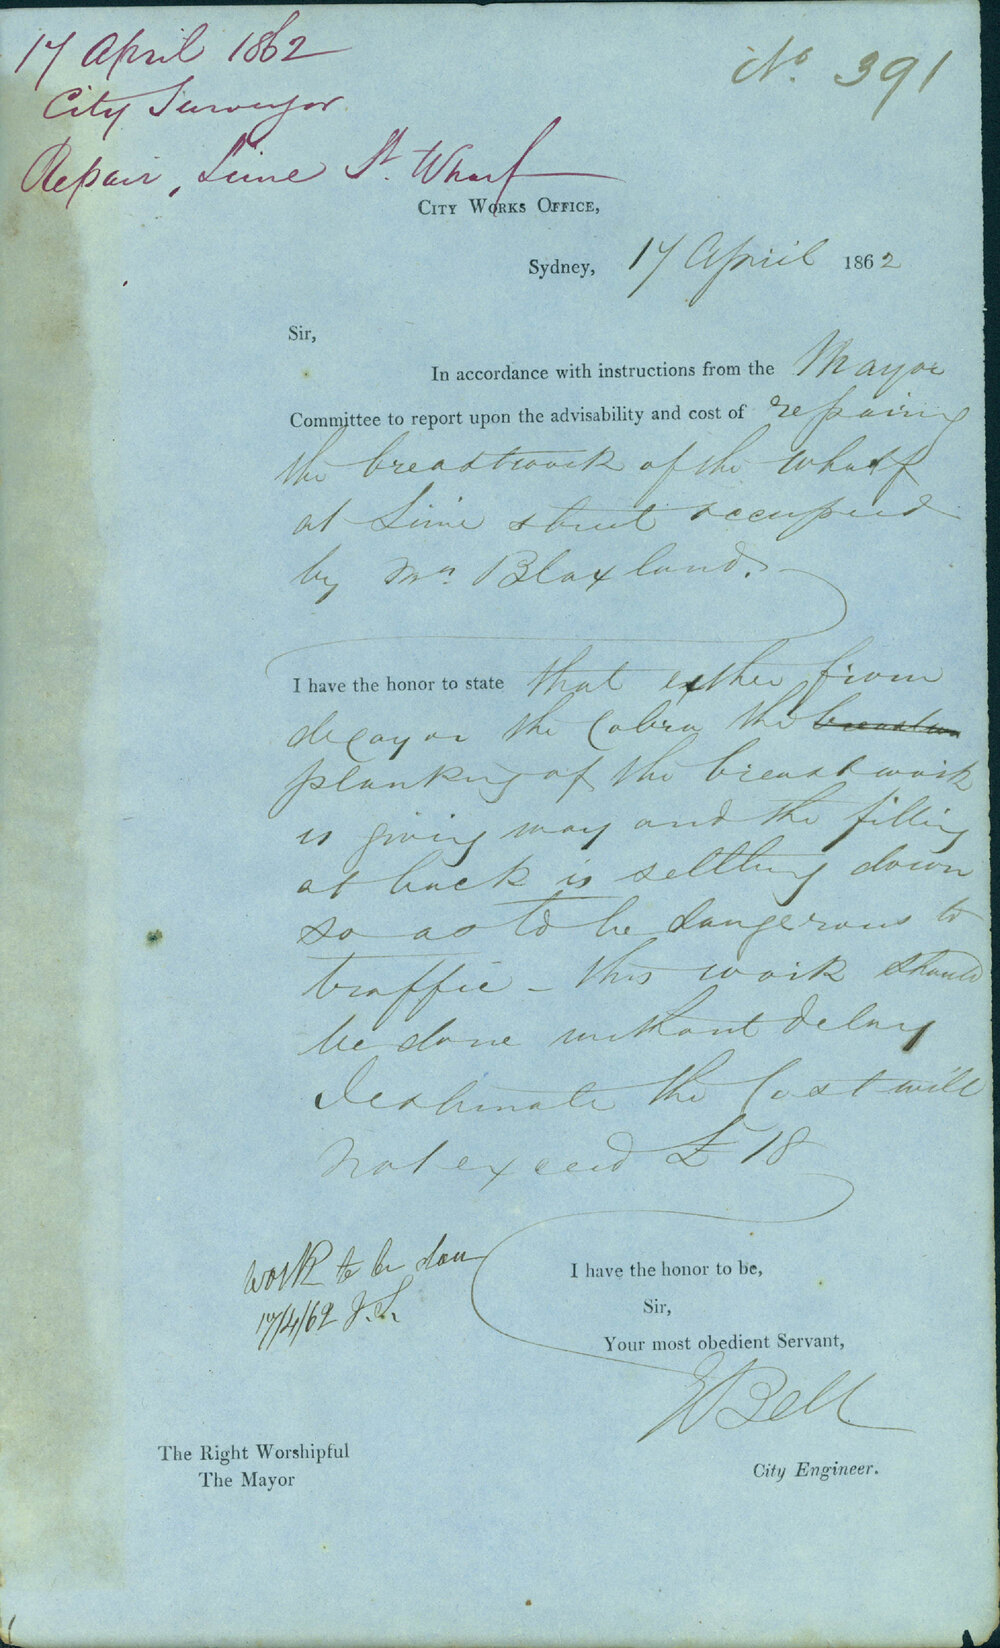 17 April 1862
City Surveyor
Repair, Lime St. Wharf
No. 391
City Works Office,
Sydney, 17 April 1862
Sir,
In accordance with instructions from the Mayor
Committee to report upon the advisability and cost of repairing
the breastwork of the wharf
at Lime street occupied
by Mr Blaxland.
I have the honor to state that either from
decay or the Cobra the
planking of the breastwork
is giving way and the filling
at back is settling down
so as to be dangerous to
traffic - this work should
be done without delay
I estimate the Cost will
not exceed £18
work to be done
17/4/62
I have the honor to be,
Sir,
Your most obedient Servant,
E Bell
City Engineer.
The Right Worshipful
The Mayor